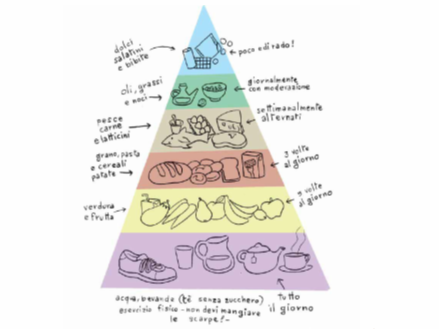 dolci
salatini
e bibite
poco e di rado!
oli, grassi
e noci
giornalmente
con moderazione
pesce
carne
e latticini
settimanalmente
alternati
grano, pasta
e cereali
patate
3 volte
al giorno
verdura
e frutta
5 volte
al giorno
tutto
il giorno
acqua, bevanda (tè senza zucchero)
esercizio fisico - non devi mangiare
le scarpe! -